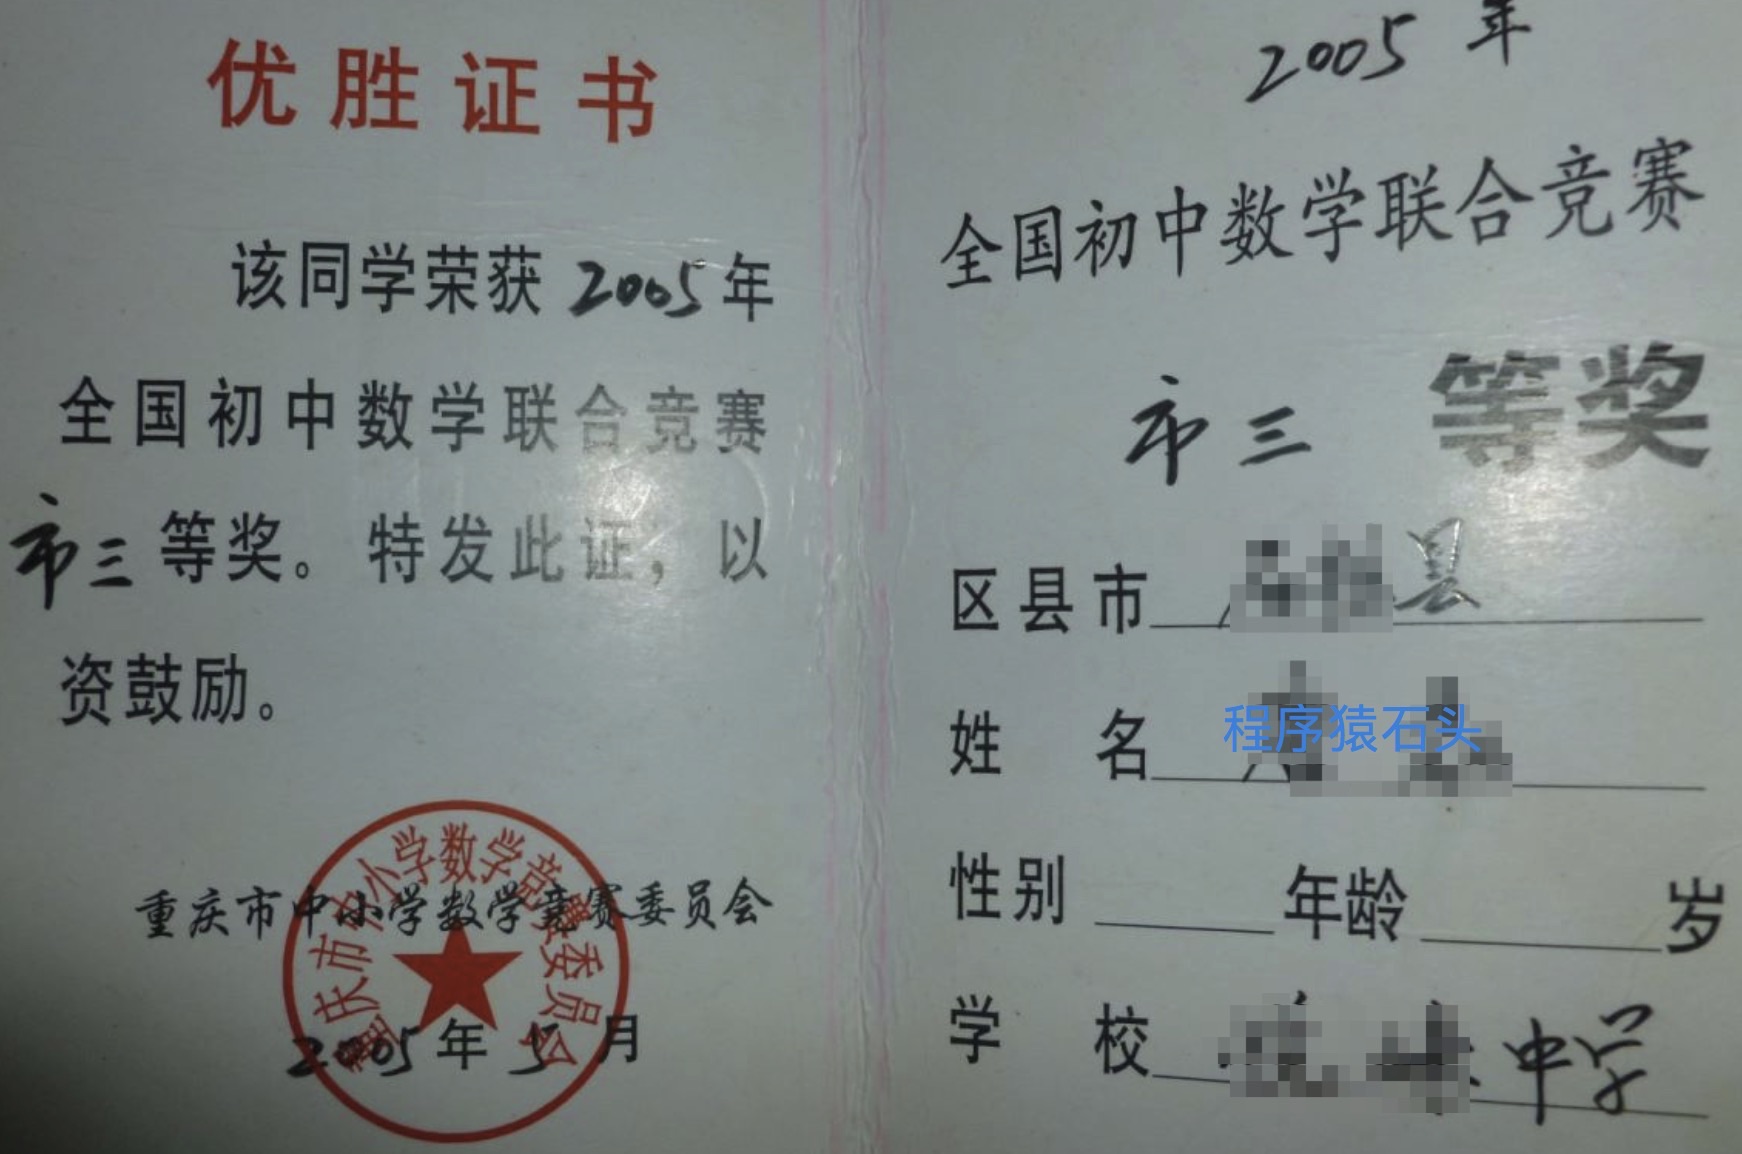 优胜证书
该同学荣获2005年
全国初中数学联合竞赛
市三等奖。特发此证，以
资鼓励。
重庆市中小学数学竞赛委员会
重庆市中小学数学竞赛委员会
2005年5月
2005年
全国初中数学联合竞赛
市三等奖
区县市 县
姓名 程序猿石头
性别 年龄 岁
学校 中学